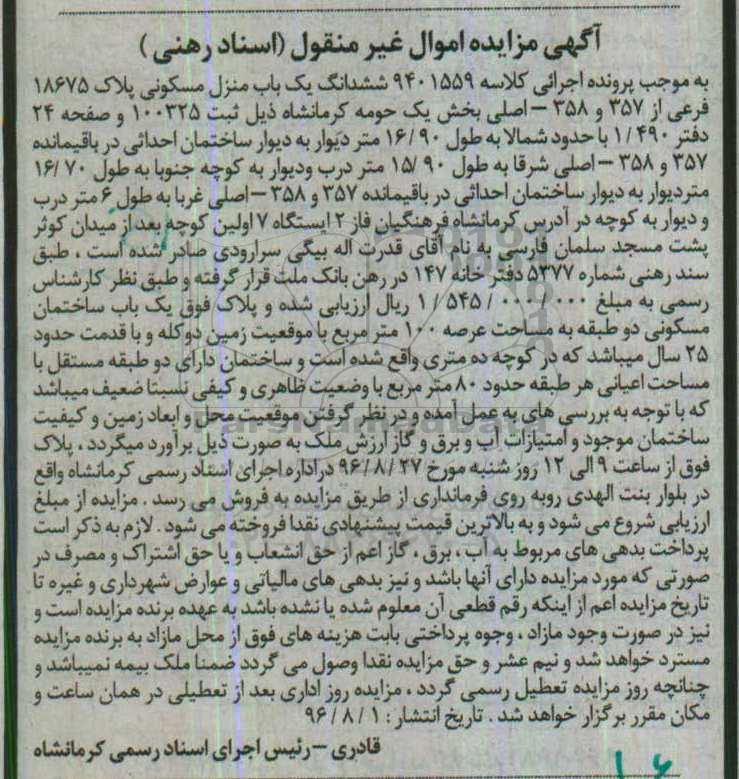 آگهی مزایده اموال غیر منقول (اسناد رهنی)
به موجب پرونده اجرائی کلاسه ۹۴۰۱۵۵۹ ششدانگ یک باب منزل مسکونی پلاک ۱۸۶۷۵
فرعی از ۳۵۷ و ۳۵۸ – اصلی بخش یک حومه کرمانشاه ذیل ثبت ۱۰۰۳۲۵ و صفحه ۲۴
دفتر ۱/۴۹۰ با حدود شمالا به طول ۱۶/۹۰ متر دیوار به دیوار ساختمان احداثی در باقیمانده
۳۵۷ و ۳۵۸ – اصلی شرقا به طول ۱۵/۹۰ متر درب ودیوار به کوچه جنوبا به طول ۱۶/۷۰
متردیوار به دیوار ساختمان احداثی در باقیمانده ۳۵۷ و ۳۵۸ – اصلی غربا به طول ۶ متر درب
و دیوار به کوچه در آدرس کرمانشاه فرهنگیان فاز ۲ ایستگاه ۷ اولین کوچه بعد از میدان کوثر
پشت مسجد سلمان فارسی به نام آقای قدرت اله بیگی سرارودی صادر شده است ، طبق
سند رهنی شماره ۵۳۷۷ دفتر خانه ۱۴۷ در رهن بانک ملت قرار گرفته و طبق نظر کارشناس
رسمی به مبلغ ۱/۵۴۵/۰۰۰/۰۰۰ ریال ارزیابی شده و پلاک فوق یک باب ساختمان
مسکونی دو طبقه به مساحت عرصه ۱۰۰ متر مربع با موقعیت زمین دوکله و با قدمت حدود
۲۵ سال میباشد که در کوچه ده متری واقع شده است و ساختمان دارای دو طبقه مستقل با
مساحت اعیانی هر طبقه حدود ۸۰ متر مربع با وضعیت ظاهری و کیفی نسبتا ضعیف میباشد
که با توجه به بررسی های به عمل آمده و در نظر گرفتن موقعیت محل و ابعاد زمین و کیفیت
ساختمان موجود و امتیازات آب و برق و گاز ارزش ملک به صورت ذیل برآورد میگردد ، پلاک
فوق از ساعت ۹ الی ۱۲ روز شنبه مورخ ۹۶/۸/۲۷ در اداره اجرای اسناد رسمی کرمانشاه واقع
در بلوار بنت الهدی روبه روی فرمانداری از طریق مزایده به فروش می رسد . مزایده از مبلغ
ارزیابی شروع می شود و به بالاترین قیمت پیشنهادی نقدا فروخته می شود . لازم به ذکر است
پرداخت بدهی های مربوط به آب ، برق ، گاز اعم از حق انشعاب و یا حق اشتراک و مصرف در
صورتی که مورد مزایده دارای آنها باشد و نیز بدهی های مالیاتی و عوارض شهرداری و غیره تا
تاریخ مزایده اعم از اینکه رقم قطعی آن معلوم شده یا نشده باشد به عهده برنده مزایده است و
نیز در صورت وجود مازاد ، وجوه پرداختی بابت هزینه های فوق از محل مازاد به برنده مزایده
مسترد خواهد شد و نیم عشر و حق مزایده نقدا وصول می گردد ضمنا ملک بیمه نمیباشد و
چنانچه روز مزایده تعطیل رسمی گردد ، مزایده روز اداری بعد از تعطیلی در همان ساعت و
مکان مقرر برگزار خواهد شد . تاریخ انتشار : ۹۶/۸/۱
قادری – رئیس اجرای اسناد رسمی کرمانشاه